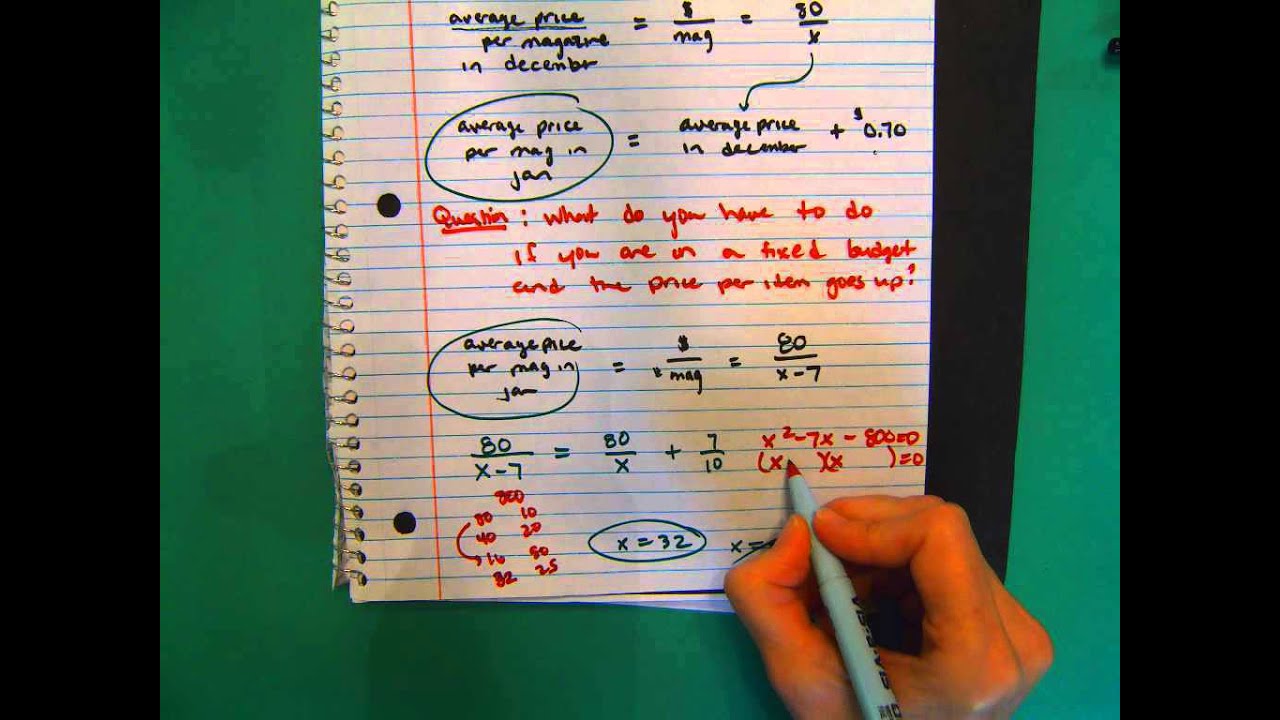 average price = $/mag = 80/x
per magazine
in decembr
average price
per mag in
jan
= average price
in december + $0.70
Question: What do you have to do
if you are on a fixed budget
and the price per item goes up?
average price
per mag in
jan
= $/mag = 80/x-7
80/x-7 = 80/x + 7/10
x²-7x-800=0
(x )(x )=0
800
80 10
40 20
32 25
x = 32
x =